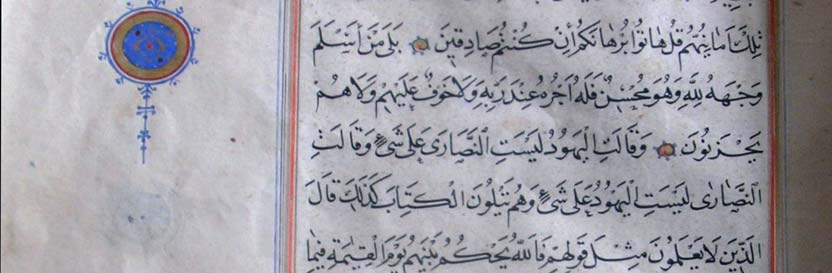 تِلْكَ اَمَانِيُّهُمْ قُلْ هَاتُوا بُرْهَانَكُمْ اِنْ كُنْتُمْ صَادِقِينَ بَلَى مَنْ اَسْلَمَ
وَجْهَهُ لِلّٰهِ وَهُوَ مُحْسِنٌ فَلَهُ اَجْرُهُ عِنْدَ رَبِّهِ وَلَا خَوْفٌ عَلَيْهِمْ وَلَا هُمْ
يَحْزَنُونَ وَقَالَتِ الْيَهُودُ لَيْسَتِ النَّصَارَى عَلَى شَيْءٍ وَقَالَتِ
النَّصَارَى لَيْسَتِ الْيَهُودُ عَلَى شَيْءٍ وَهُمْ يَتْلُونَ الْكِتَابَ كَذَلِكَ قَالَ
الَّذِينَ لَا يَعْلَمُونَ مِثْلَ قَوْلِهِمْ فَاللّٰهُ يَحْكُمُ بَيْنَهُمْ يَوْمَ الْقِيٰمَةِ فِيمَا